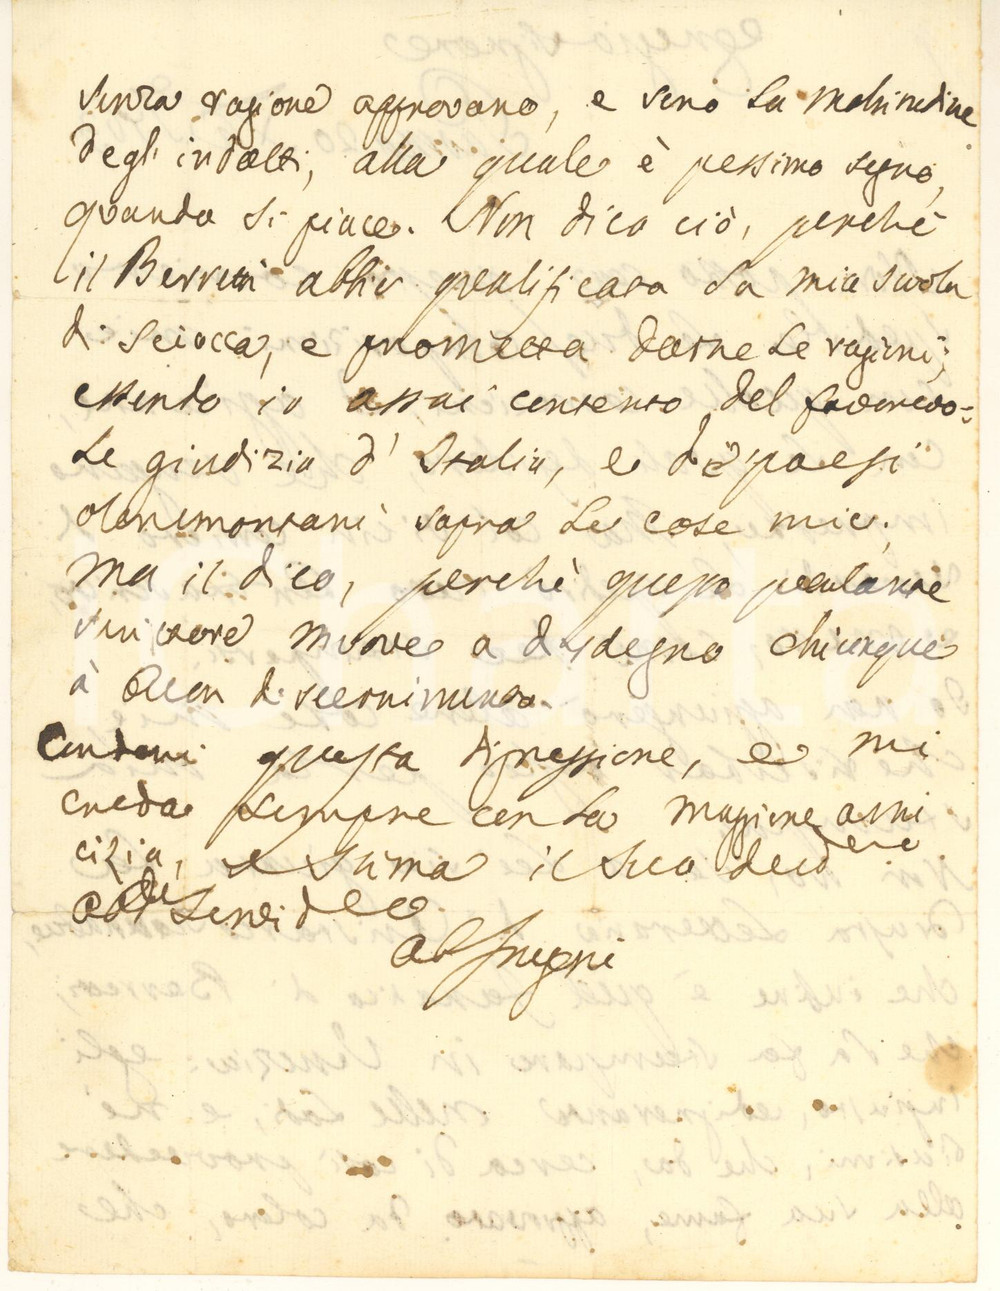 senza ragione approvano, e sino la moltitudine
degl' indotti, alla quale è pessimo segno,
quando si piace. Non dico ciò, perchè
il Berretti abbia qualificata la mia scuola
di sciocca, e prometta darne le ragioni;
essendo io assai contento del favorevo=
le giudizio d' Italia, e de' paesi
oltremontani sopra le cose mie;
Ma il dico, perchè questo petulante
scrittore muove a disdegno chiunque
à discernimento.
Condoni questa digressione, e mi
creda sempre con la maggiore ami
cizia, e stima il suo